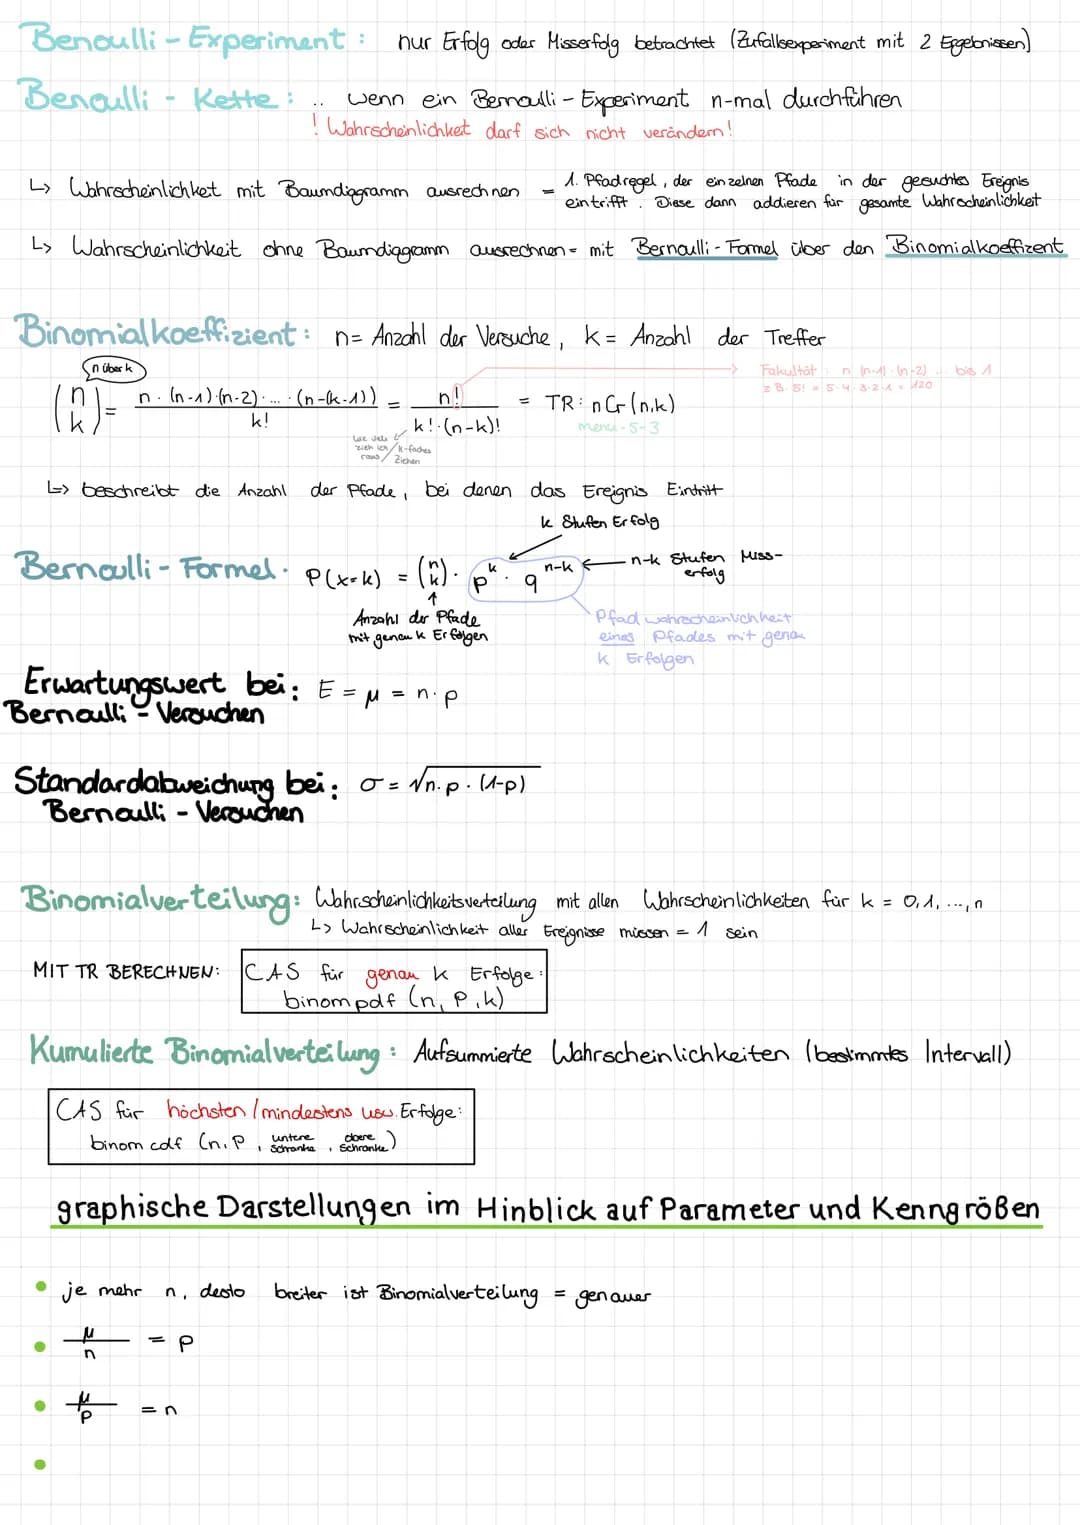 Benoulli - Experiment : nur Erfolg oder Misserfolg betrachtet (Zufallsexperiment mit 2 Ergebnissen)
Benoulli - Kette : .. wenn ein Bernoulli - Experiment n-mal durchführen
! Wahrscheinlichket darf sich nicht verändern!
↳ Wahrscheinlichket mit Baumdiagramm ausrechnen = 1. Pfadregel, der einzelnen Pfade in der gesuchtes Ereignis
eintrifft. Diese dann addieren für gesamte Wahrscheinlichkeit
↳ Wahrscheinlichkeit ohne Baumdiagramm ausrechnen = mit Bernoulli - Formel über den Binomialkoeffizent
Binomialkoeffizient : n = Anzahl der Versuche, k = Anzahl der Treffer
n über k
(n k) = n · (n-1)·(n-2)· ... · (n-(k-1)) / k! = n! / k!·(n-k)! = TR: nCr (n,k)
menu - 5-3
Fakultät : n (n-1)·(n-2) ... bis 1
z B. 5! = 5·4·3·2·1 = 120
wie viele zieh ich raus / k-faches Ziehen
↳ beschreibt die Anzahl der Pfade, bei denen das Ereignis Eintritt
k Stufen Erfolg
Bernoulli - Formel : P(x=k) = (n k) · p^k · q^n-k ← n-k Stufen Miss-
erfolg
Anzahl der Pfade
mit genau k Erfolgen
Pfadwahrscheinlichkeit
eines Pfades mit genau
k Erfolgen
Erwartungswert bei : E = μ = n·p
Bernoulli - Versuchen
Standardabweichung bei : σ = √n·p·(1-p)
Bernoulli - Versuchen
Binomialverteilung: Wahrscheinlichkeitsverteilung mit allen Wahrscheinlichkeiten für k = 0,1, ..., n
↳ Wahrscheinlichkeit aller Ereignisse müssen = 1 sein
MIT TR BERECHNEN: CAS für genau k Erfolge :
binompdf (n, P, k)
Kumulierte Binomialverteilung : Aufsummierte Wahrscheinlichkeiten (bestimmtes Intervall)
CAS für höchsten / mindestens usw. Erfolge:
binom cdf (n, P, untere Schranke, obere Schranke)
graphische Darstellungen im Hinblick auf Parameter und Kenngrößen
• je mehr n, desto breiter ist Binomialverteilung = genauer
• μ / n = p
• μ / p = n
•